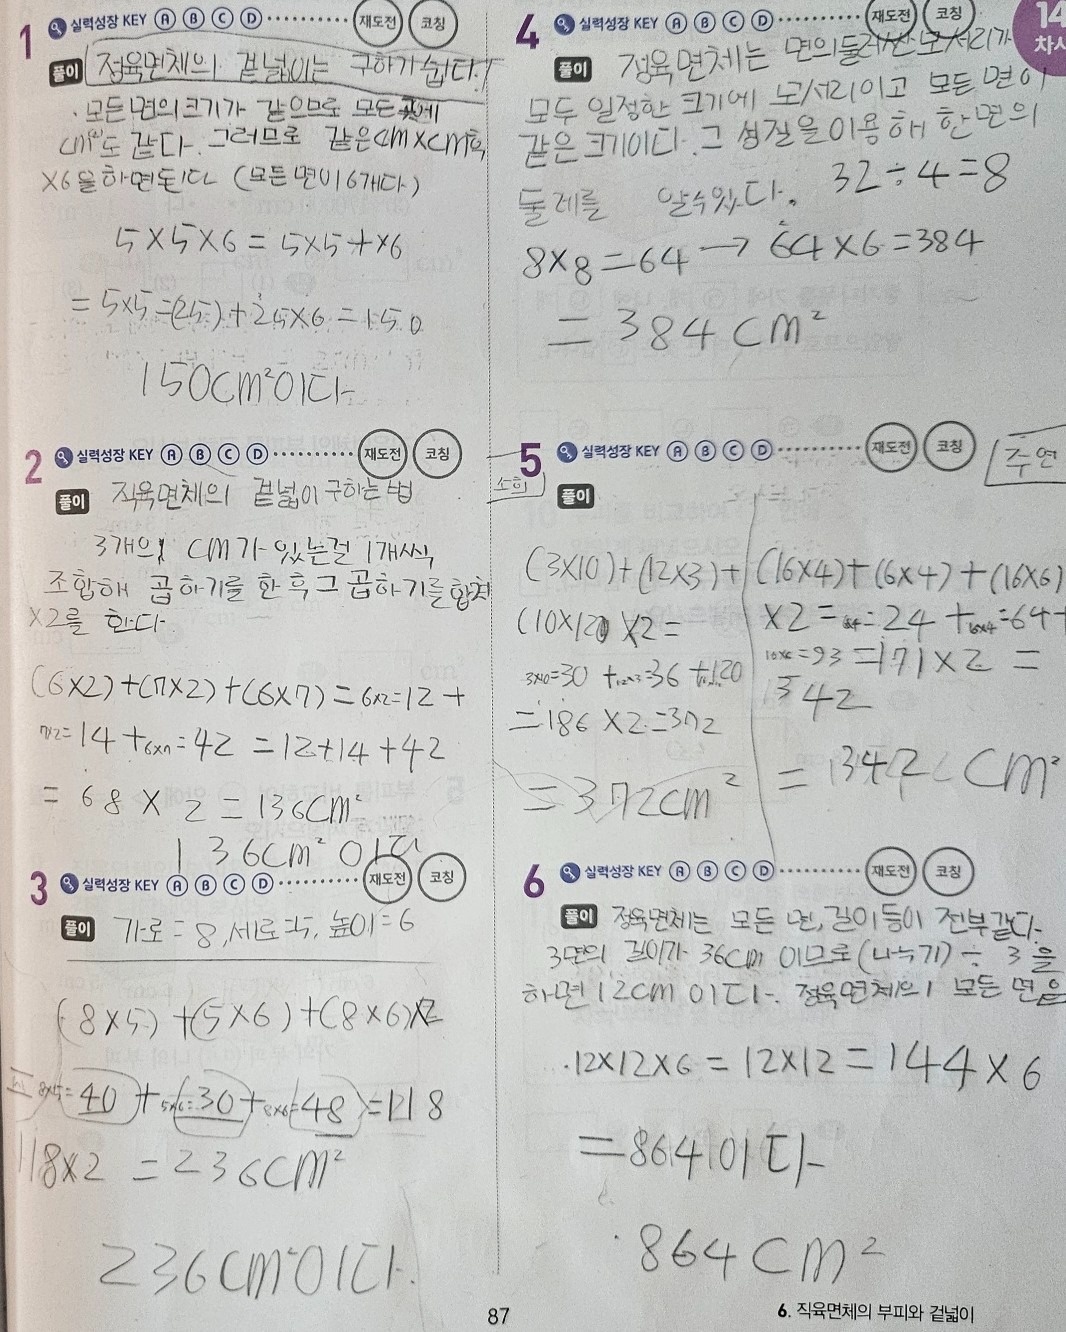 1 실력성장 KEY A B C D 재도전 코칭
풀이 정육면체의 겉넓이는 구하기 쉽다.
· 모든 면의 크기가 같으므로 모든 곳에
cm도 같다. 그러므로 같은 cm×cm후
×6을 하면된다 (모든 면이 6개다)
5×5×6 = 5×5+×6
= 5×5=(25)+25×6=150
150cm²이다
2 실력성장 KEY A B C D 재도전 코칭
풀이 직육면체의 겉넓이 구하는 법
3개의 cm가 있는걸 1개씩
조합해 곱하기를 한 후 그 곱하기를 합쳐
×2를 한다
(6×2)+(7×2)+(6×7)=6×2=12+
7×2=14+6×7=42=12+14+42
= 68×2=136cm²
136cm²이다
3 실력성장 KEY A B C D 재도전 코칭
풀이 가로=8, 세로=5, 높이=6
(8×5)+(5×6)+(8×6)×2
8×5=40+5×6=30+8×6=48=118
118×2=236cm²
236cm²이다.
14
차시
4 실력성장 KEY A B C D 재도전 코칭
풀이 정육면체는 면의 둘러싼 모서리가
모두 일정한 크기에 모서리이고 모든 면이
같은 크기이다. 그 성질을 이용해 한 면의
둘레를 알수있다. 32÷4=8
8×8=64→64×6=384
=384cm²
5 실력성장 KEY A B C D 재도전 코칭
풀이
소희
(3×10)+(12×3)+
(10×12) ×2=
3×10=30+12×3=36+120
=186×2=372
=372cm²
주연
(16×4)+(6×4)+(16×6)
×2= =24+6×4=64+
16×6=93=171×2=
342
=342cm²
6 실력성장 KEY A B C D 재도전 코칭
풀이 정육면체는 모든 면, 길이등이 전부같다.
3면의 길이가 36cm 이므로 (나누기)÷3을
하면 12cm이다. 정육면체의 모든 면을
·12×12×6=12×12=144×6
=864이다
·864cm²
87
6. 직육면체의 부피와 겉넓이